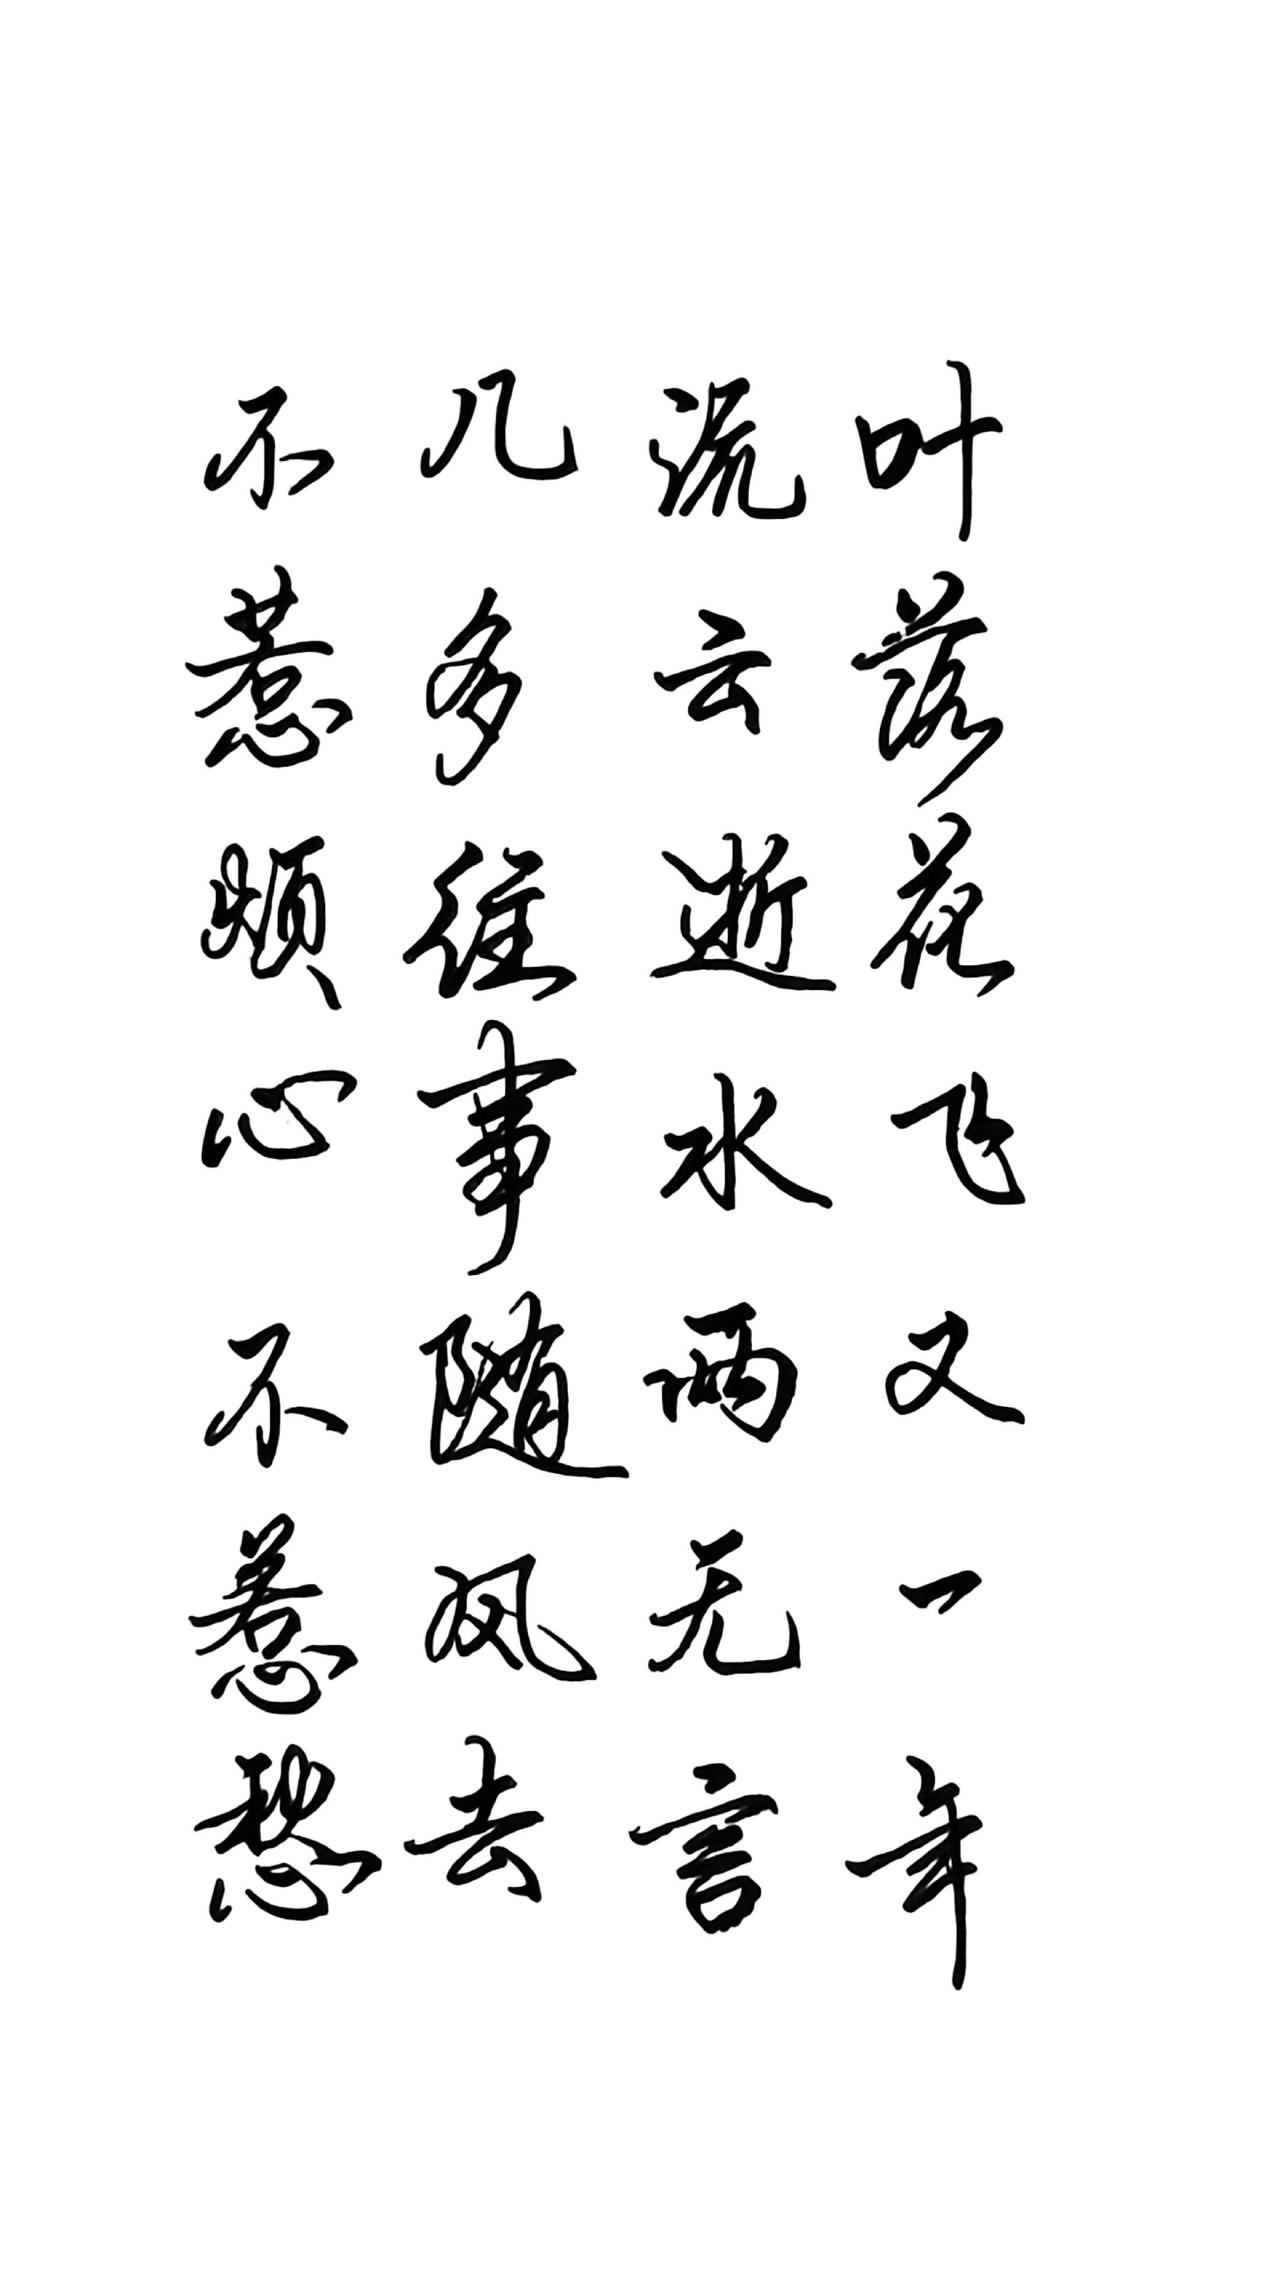 叶落花飞又一年
流云逝水两无言
几多往事随风去
不惹烦心不惹愁